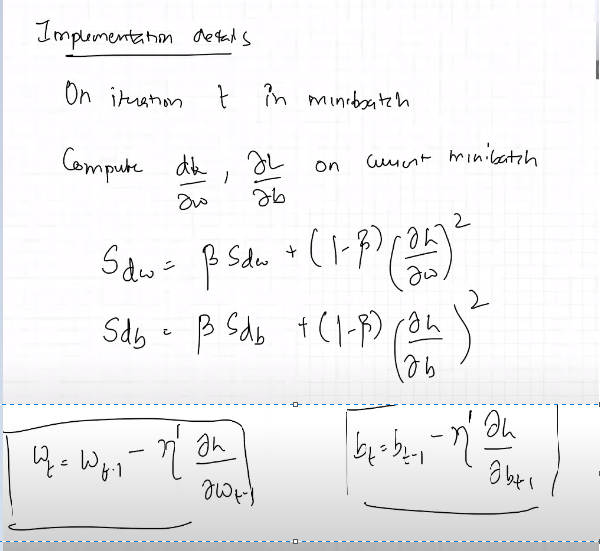 Implementation details
On iteration t in minibatch
Compute ∂L/∂w , ∂L/∂b on current minibatch
Sdw = β Sdw + (1-β) (∂L/∂w)²
Sdb = β Sdb + (1-β) (∂L/∂b)²
wt = wt-1 - η' ∂L/∂wt-1    bt = bt-1 - η' ∂L/∂bt-1